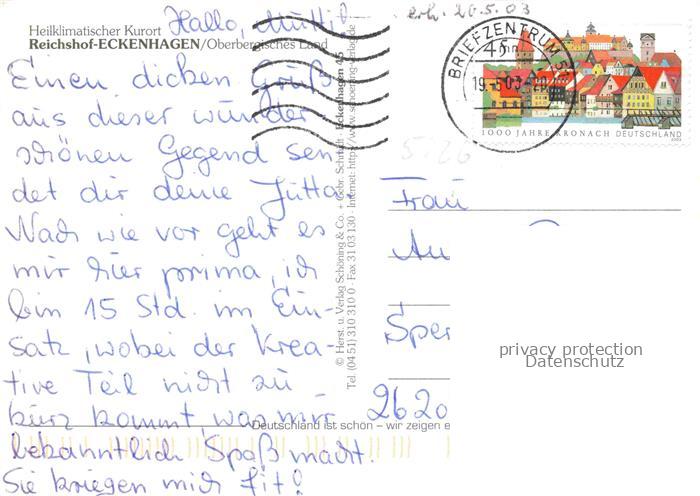 Hallo, Mutti!
erh. 20.5.03
Heilklimatischer Kurort
Reichshof-ECKENHAGEN/Oberbergisches Land
Einen dicken Gruß
aus dieser wunder
schönen Gegend sen
det dir deine Jutta
Nach wie vor geht es
mir hier prima, ich
bin 15 Std. im Ein-
satz, wobei der Krea-
tive Teil nicht zu
kurz kommt, was mir
bekanntlich Spaß macht.
Sie kriegen mich fit!
© Herst. u. Verlag Schöning & Co. + Gebr. Schmidt · Eckenhagen 45
Tel. (04 51) 310 310 0 · Fax 31 03 130 · Internet: http://www.schoening-verlag.de
Deutschland ist schön – wir zeigen e
BRIEFZENTRUM 51
19.-5.03
45
1000 JAHRE KRONACH DEUTSCHLAND
2003
5.26
Frau
An
Sper
2620
privacy protection
Datenschutz